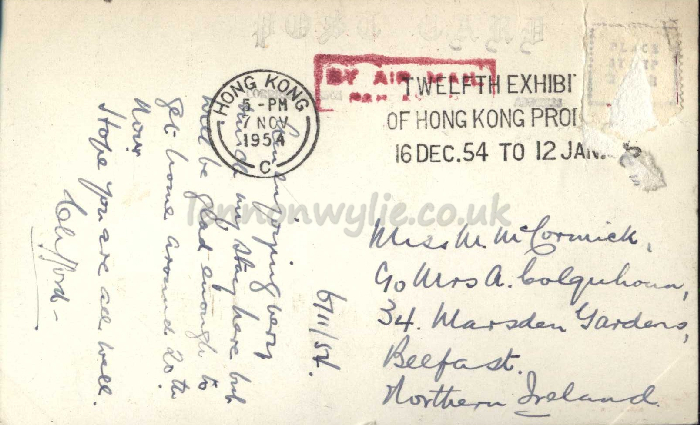 POST CARD
PLACE
STAMP
HERE
BY AIR MAIL
PAR AVION
HONG KONG
5-PM
7 NOV
1954
C
TWELFTH EXHIBIT
OF HONG KONG PROD
16 DEC. 54 TO 12 JAN. 55
lennonwylie.co.uk
6/11/54.
Am enjoying very
much my stay here but
will be glad enough to
get home around 20th
Nov.
Hope you are all well.
Clifford-
Miss M. McCormick,
c/o Mrs A. Colquhoun,
34. Marsden Gardens,
Belfast.
Northern Ireland.